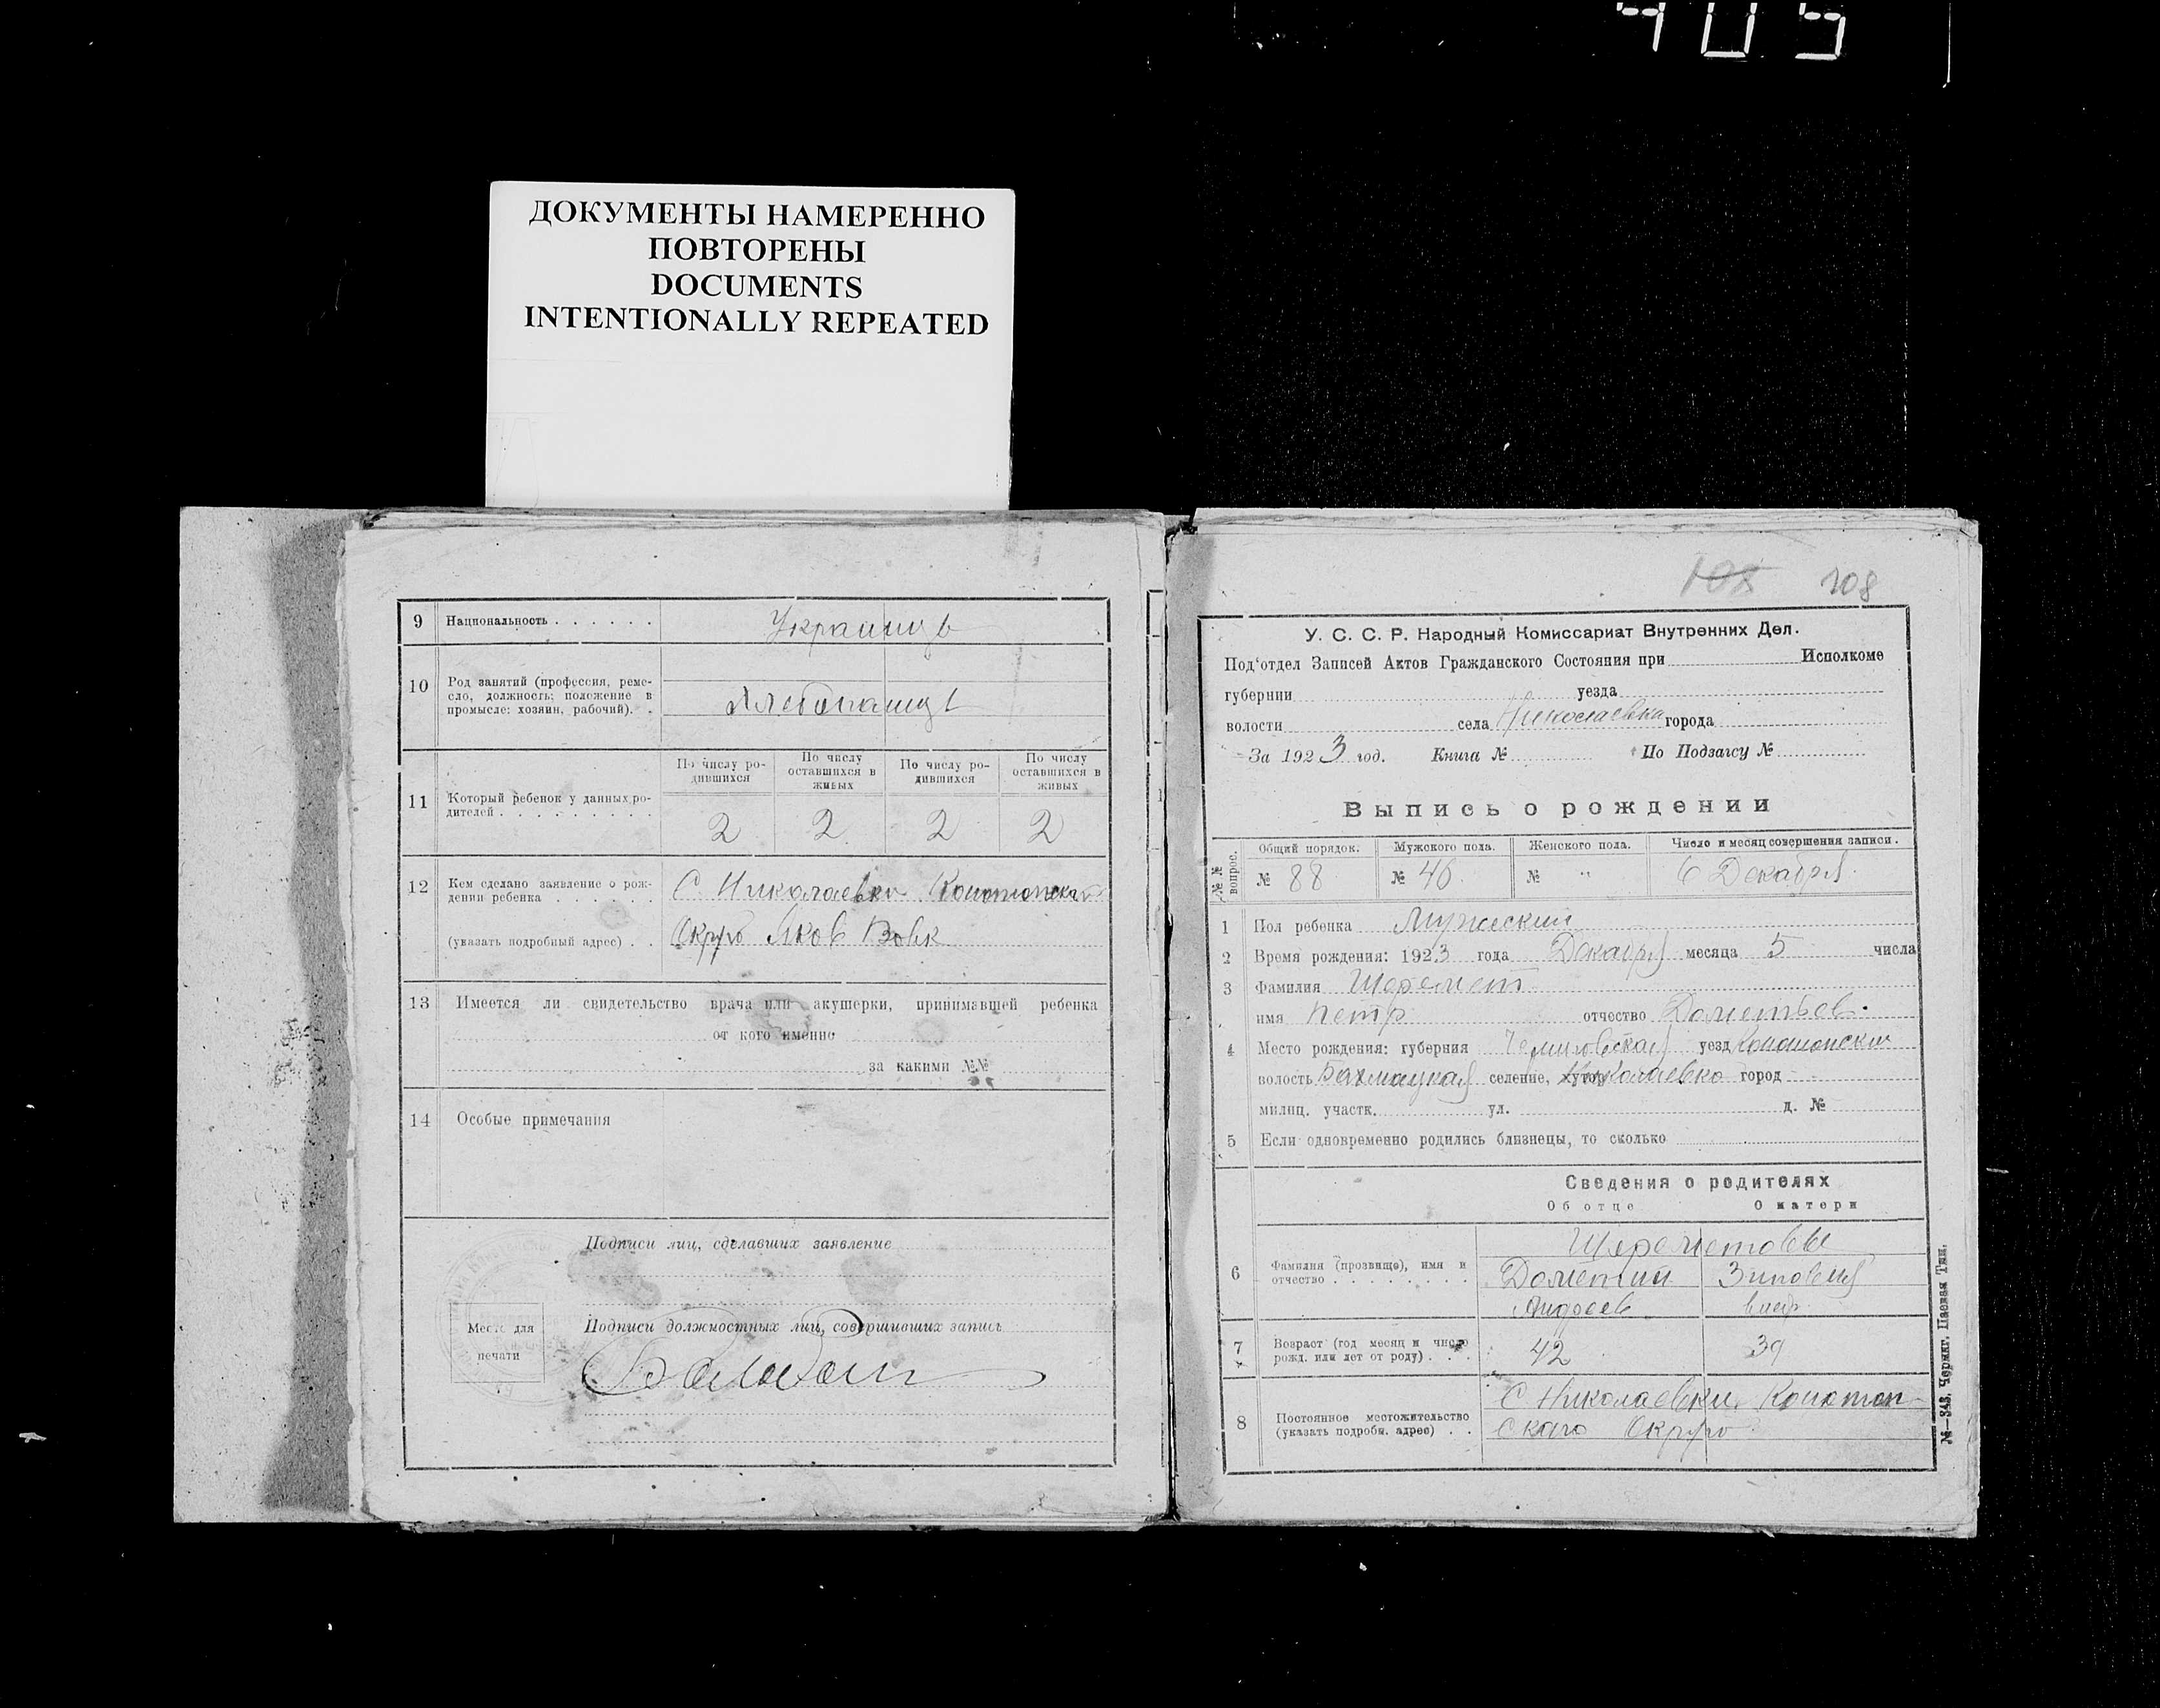 405
ДОКУМЕНТЫ НАМЕРЕННО
ПОВТОРЕНЫ
DOCUMENTS
INTENTIONALLY REPEATED
9 Национальность . . . . . . Украинцы
10 Род занятий (профессия, реме-
сло, должность; положение в
промысле: хозяин, рабочий). .
11 Который ребенок у данных ро-
дителей . . . . . . . . .
По числу ро-
дившихся
По числу
оставшихся в
живых
По числу ро-
дившихся
По числу
оставшихся в
живых
2 2 2 2
12 Кем сделано заявление о рож-
дении ребенка . . . . . .
(указать подробный адрес) . .
С Николаевка Конотопской
Округ Яков Вовк
13 Имеется ли свидетельство врача или акушерки, принимавшей ребенка
от кого именно
за какими №№
14 Особые примечания
Подписи лиц, сделавших заявление
Место для
печати
Подписи должностных лиц, совершивших запись
108 108
У. С. С. Р. Народный Комиссариат Внутренних Дел.
Под‘отдел Записей Актов Гражданского Состояния при Исполкоме
губернии уезда
волости села Николаевка города
За 1923 год. Книга № По Подзагсу №
Выпись о рождении
№№ вопрос.
Общий порядок. Мужского пола. Женского пола. Число и месяц совершения записи.
№ 88 № 46 № " 6 Декабря
1 Пол ребенка Мужеский
2 Время рождения: 1923 года Декабря месяца 5 числа
3 Фамилия Шеремет
имя Петр отчество Дометьев.
4 Место рождения: губерния Черниговская уезд Конотопский
волость Бахмацкая селение, хутор Николаевка город
милиц. участк. ул. д. №
5 Если одновременно родились близнецы, то сколько
Сведения о родителях
Об отце О матери
6 Фамилия (прозвище), имя и
отчество . . . . . . . .
Шереметовы
Дометий Зиновия
Андреев
7 Возраст (год месяц и число
рожд. или лет от роду) . . .
42 39
8 Постоянное местожительство
(указать подробн. адрес) . .
С Николаевки Конотоп-
скаго Округа
№—343. Чернг. Паевая Тип.